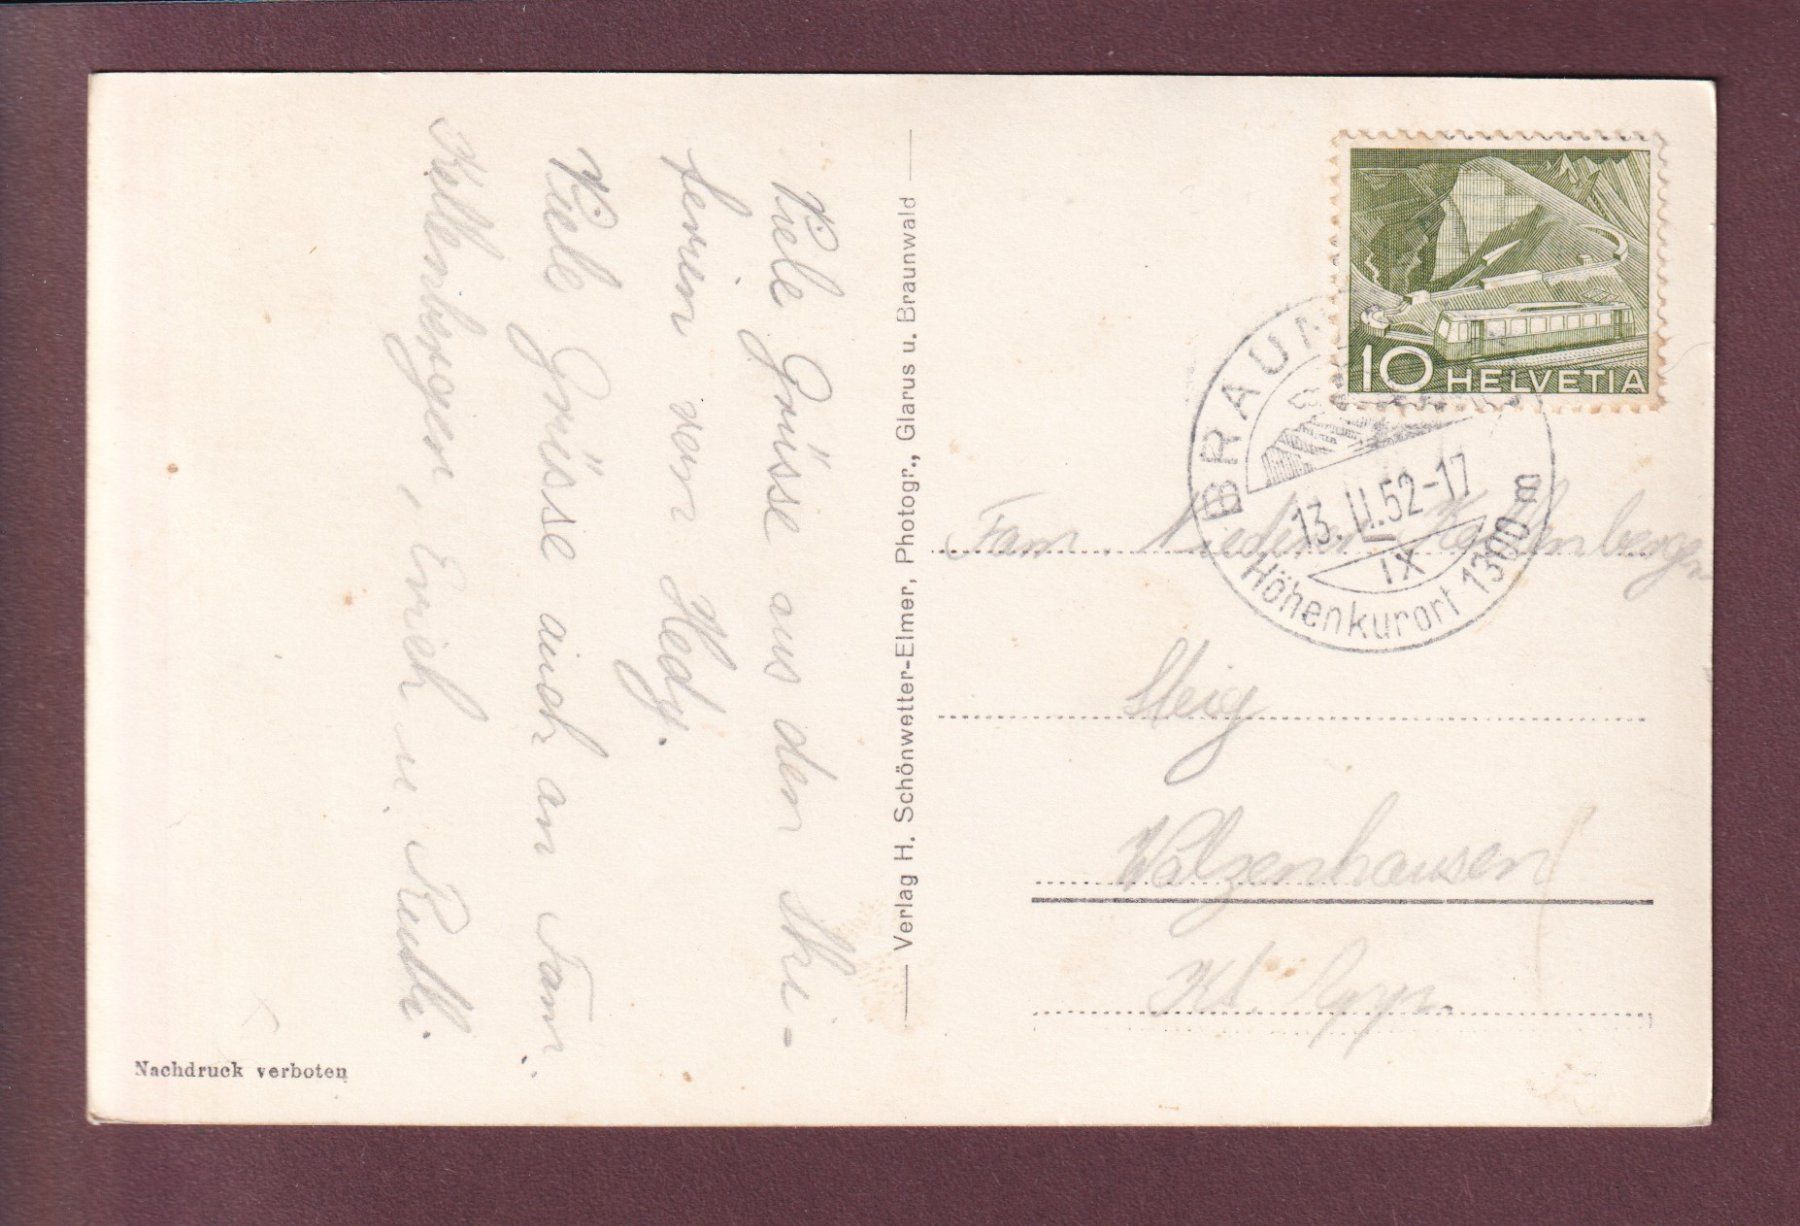 Viele Grüsse aus den Ski-
ferien von Hedy.
Viele Grüsse auch an Fam.
Kellenbergen, Erich u. Ruedi.
Verlag H. Schönwetter-Elmer, Photogr., Glarus u. Braunwald
Nachdruck verboten
10 HELVETIA
BRAUN
13. II. 52-17
IX
Höhenkurort 1300 m
Fam. Niederer Kellenberger
Steig
Walzenhausen
Kt. App.